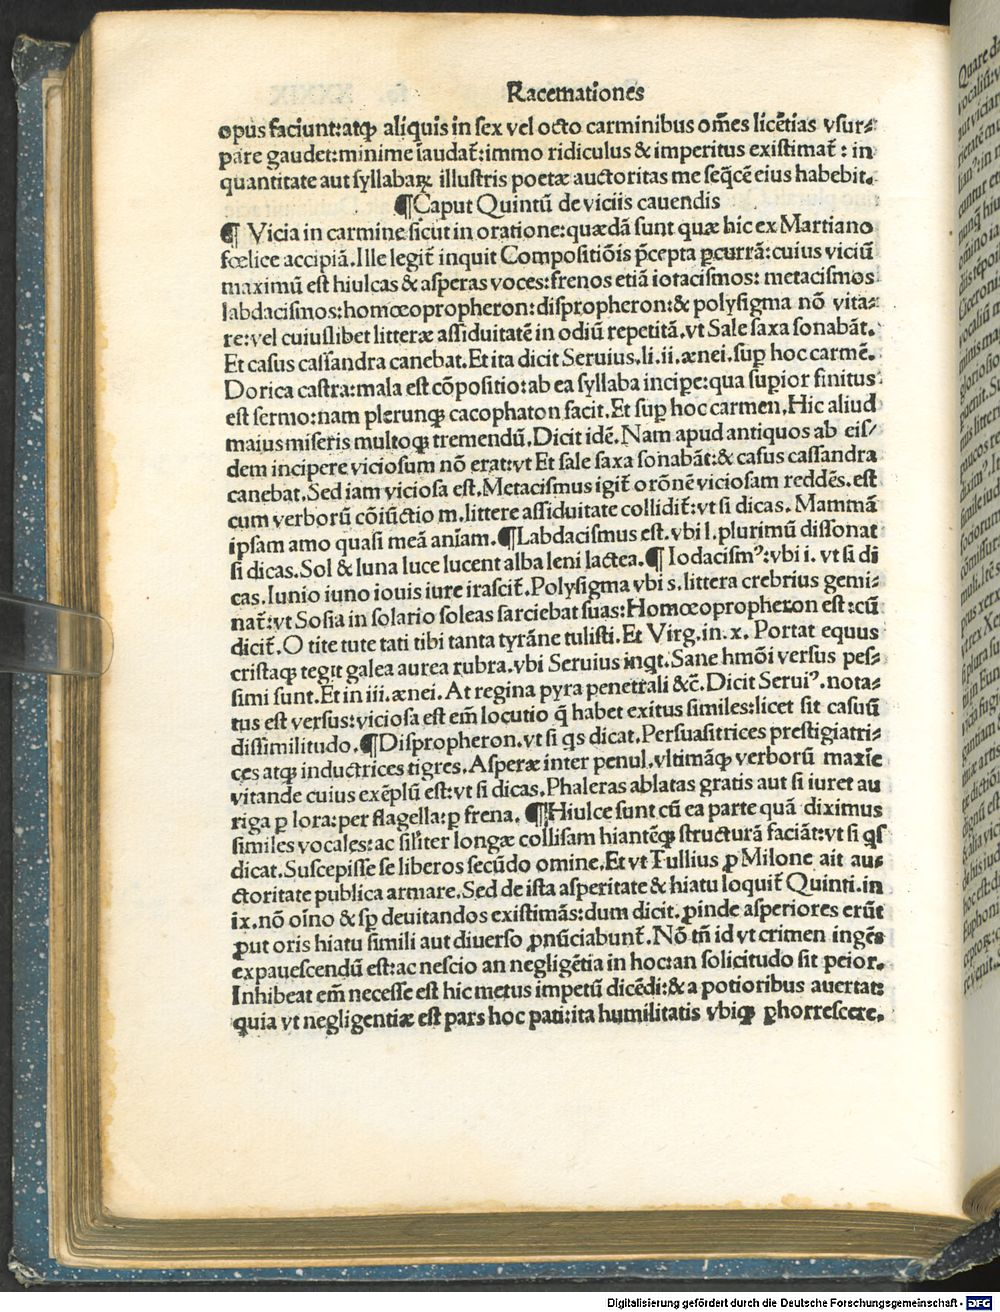 Racemationes
opus faciunt:atqꝫ aliquis in sex vel octo carminibus om̄es licētias vsur⸗
pare gaudet:minime iaudat̄:immo ridiculus & imperitus existimat̄ : in
quantitate aut syllabaꝝ illustris poetæ auctoritas me seq̄cē eius habebit.
¶Caput Quintū de viciis cauendis
¶ Vicia in carmine sicut in oratione:quædā sunt quæ hic ex Martiano
fœlice accipiā.Ille legit̄ inquit Compositiōis p̄cepta ꝑcurrā:cuius viciū
maximū est hiulcas & asperas voces:frenos etiā iotacismos: metacismos
labdacismos:homœopropheron:dispropheron:& polysigma nō vita⸗
re:vel cuiuslibet litteræ assiduitatē in odiū repetitā.vt Sale saxa sonabāt.
Et casus cassandra canebat.Et ita dicit Seruius.li.ii.ænei.suꝑ hoc carmē.
Dorica castra:mala est cōpositio:ab ea syllaba incipe:qua suꝑior finitus
est sermo:nam plerunqꝫ cacophaton facit.Et suꝑ hoc carmen.Hic aliud
maius miseris multoqꝫ tremendū.Dicit idē.Nam apud antiquos ab eis/
dem incipere viciosum nō erat:vt Et sale saxa sonabāt:& casus cassandra
canebat.Sed iam viciosa est.Metacismus igit̄ orōnē viciosam reddēs.est
cum verborū cōiūctio m.littere assiduitate collidit̄:vt si dicas. Mammā
ipsam amo quasi meā aniam.¶Labdacismus est.vbi l.plurimū dissonat
si dicas.Sol & luna luce lucent alba leni lactea.¶ Iodacismꝰ:vbi i. vt si di
cas.Iunio iuno iouis iure irascit̄.Polysigma vbi s.littera crebrius gemi⸗
nat̄:vt Sosia in solario soleas sarciebat suas:Homœopropheron est:cū
dicit̄.O tite tute tati tibi tanta tyrāne tulisti.Et Virg.in.x. Portat equus
cristaqꝫ tegit galea aurea rubra.vbi Seruius inqt.Sane hmōi versus pes⸗
simi sunt.Et in iii.ænei.At regina pyra penetrali &c̄.Dicit Seruiꝰ.nota⸗
tus est versus:viciosa est em̄ locutio q̄ habet exitus similes:licet sit casuū
dissimilitudo.¶Dispropheron.vt si qs dicat.Persuasitrices prestigiatri⸗
ces atqꝫ inductrices tigres.Asperæ inter penul.vltimāqꝫ verborū maxīe
vitande cuius exēplū est:vt si dicas.Phaleras ablatas gratis aut si iuret au
riga ꝑ lora:per flagella:ꝑ frena. ¶Hiulce sunt cū ea parte quā diximus
similes vocales:ac siliter longæ collisam hiantēqꝫ structurā faciāt:vt si qs
dicat.Suscepisse se liberos secūdo omine.Et vt Tullius ꝓ Milone ait au⸗
ctoritate publica armare.Sed de ista asperitate & hiatu loquit̄ Quinti.in
ix.nō oīno & sꝑ deuitandos existimās:dum dicit.ꝓinde asperiores erūt
ꝓut oris hiatu simili aut diuerso ꝓnūciabunt̄.Nō tn̄ id vt crimen ingēs
expauescendū est:ac nescio an negligētia in hoc:an solicitudo sit peior.
Inhibeat em̄ necesse est hic metus impetū dicēdi:& a potioribus auertat:
quia vt negligentiæ est pars hoc pati:ita humilitatis vbiqꝫ ꝑhorrescere.
Digitalisierung gefördert durch die Deutsche Forschungsgemeinschaft - DFG